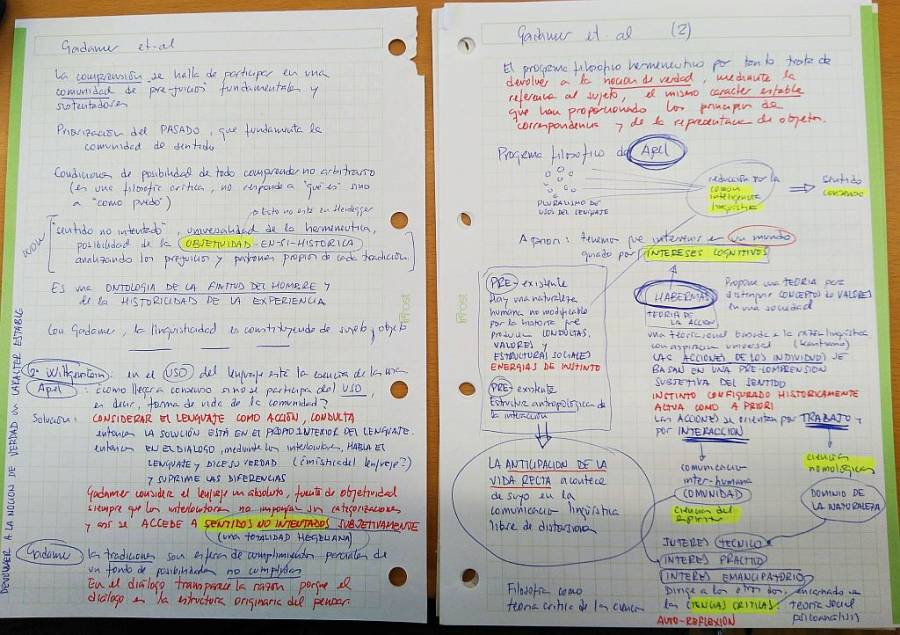 Gadamer et al
La comprensión se halla de participar en una
comunidad de prejuicios fundamentales y
sustentadores
Priorización del PASADO, que fundamenta la
comunidad de sentido
Condiciones de posibilidad de todo comprender no arbitrario
(es una filosofía crítica, no responde a "qué es" sino
a "cómo puedo")
Esto no está en Heidegger
WOW
"sentido no intentado", universalidad de la hermenéutica,
posibilidad de la OBJETIVIDAD-EN-SI-HISTORICA
analizando los prejuicios y patrones propios de cada tradición
Es una ONTOLOGIA DE LA FINITUD DEL HOMBRE Y
de la HISTORICIDAD DE LA EXPERIENCIA
Con Gadamer, la lingüisticidad es constituyendo de sujeto y objeto
2º Wittgenstein: en el USO del lenguaje está la esencia de la
Apel: ¿cómo llegar a consenso si no se participa del USO,
es decir, forma de vida de la comunidad?
Solución: CONSIDERAR EL LENGUAJE COMO ACCIÓN, CONDUCTA
entonces LA SOLUCIÓN ESTÁ EN EL PROPIO INTERIOR DEL LENGUAJE.
entonces EN EL DIALOGO, mediante los interlocutores, HABLA EL
LENGUAJE Y DICE SU VERDAD (¿mística del lenguaje?)
Y SUPRIME LAS DIFERENCIAS
Gadamer considera el lenguaje un absoluto, fuente de objetividad
siempre que los interlocutores no impongan sus categorizaciones
y así se ACCEDE A SENTIDOS NO INTENTADOS SUBJETIVAMENTE
(una TOTALIDAD HEGELIANA)
Gadamer las tradiciones son esferas de cumplimientos parciales de
un fondo de posibilidades no cumplidas
En el diálogo transparece la razón porque el
diálogo es la estructura originaria del pensar.
DEVOLVER A LA NOCION DE VERDAD UN CARÁCTER ESTABLE
Gadamer et al (2)
El programa filosófico hermenéutico por tanto trata de
devolver a la noción de verdad, mediante la
referencia al sujeto, el mismo carácter estable
que han proporcionado los principios de
correspondencia y de la representación de objetos.
Programa filosófico de Apel
PLURALISMO DE
USOS DEL LENGUAJE
reducción por la
común
inteligencia
lingüística
sentido
consenso
A priori: tenemos que internos en un mundo
guiado por INTERESES COGNITIVOS
PRE-existente
Hay una naturaleza
humana no modificable
por la historia que
produce CONDUCTAS,
VALORES Y
ESTRUCTURAS SOCIALES
ENERGIAS DE INSTINTO
PRE-existente
Estructura antropológica de
la interacción
LA ANTICIPACION DE LA
VIDA RECTA acontece
de suyo en la
comunicación lingüística
libre de distorsiones
Filosofía como
teoría crítica de las ciencias
HABERMAS
TEORIA DE
LA ACCION
Propone una TEORIA para
distinguir CONCEPTOS de VALORES
en una sociedad
una teoría racional basada en la razón lingüística
con aspiración universal (kantiana)
LAS ACCIONES DE LOS INDIVIDUOS SE
BASAN EN UNA PRE-COMPRENSION
SUBJETIVA DEL SENTIDO
INSTINTO CONFIGURADO HISTORICAMENTE
ACTUA COMO A PRIORI
Las ACCIONES se orientan por TRABAJO y
por INTERACCION
comunicación
inter-humana
COMUNIDAD
ciencias del
espíritu
ciencias
nomológicas
DOMINIO DE
LA NATURALEZA
INTERES TECNICO
INTERES PRACTICO
INTERES EMANCIPATORIO
Dirige a los otros dos, encarnado en
las CIENCIAS CRITICAS: teoría social
psicoanálisis
AUTO-REFLEXIÓN